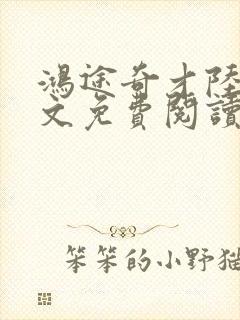 鴻途奇才陸
文免費閱讀
笨笨的小野猫